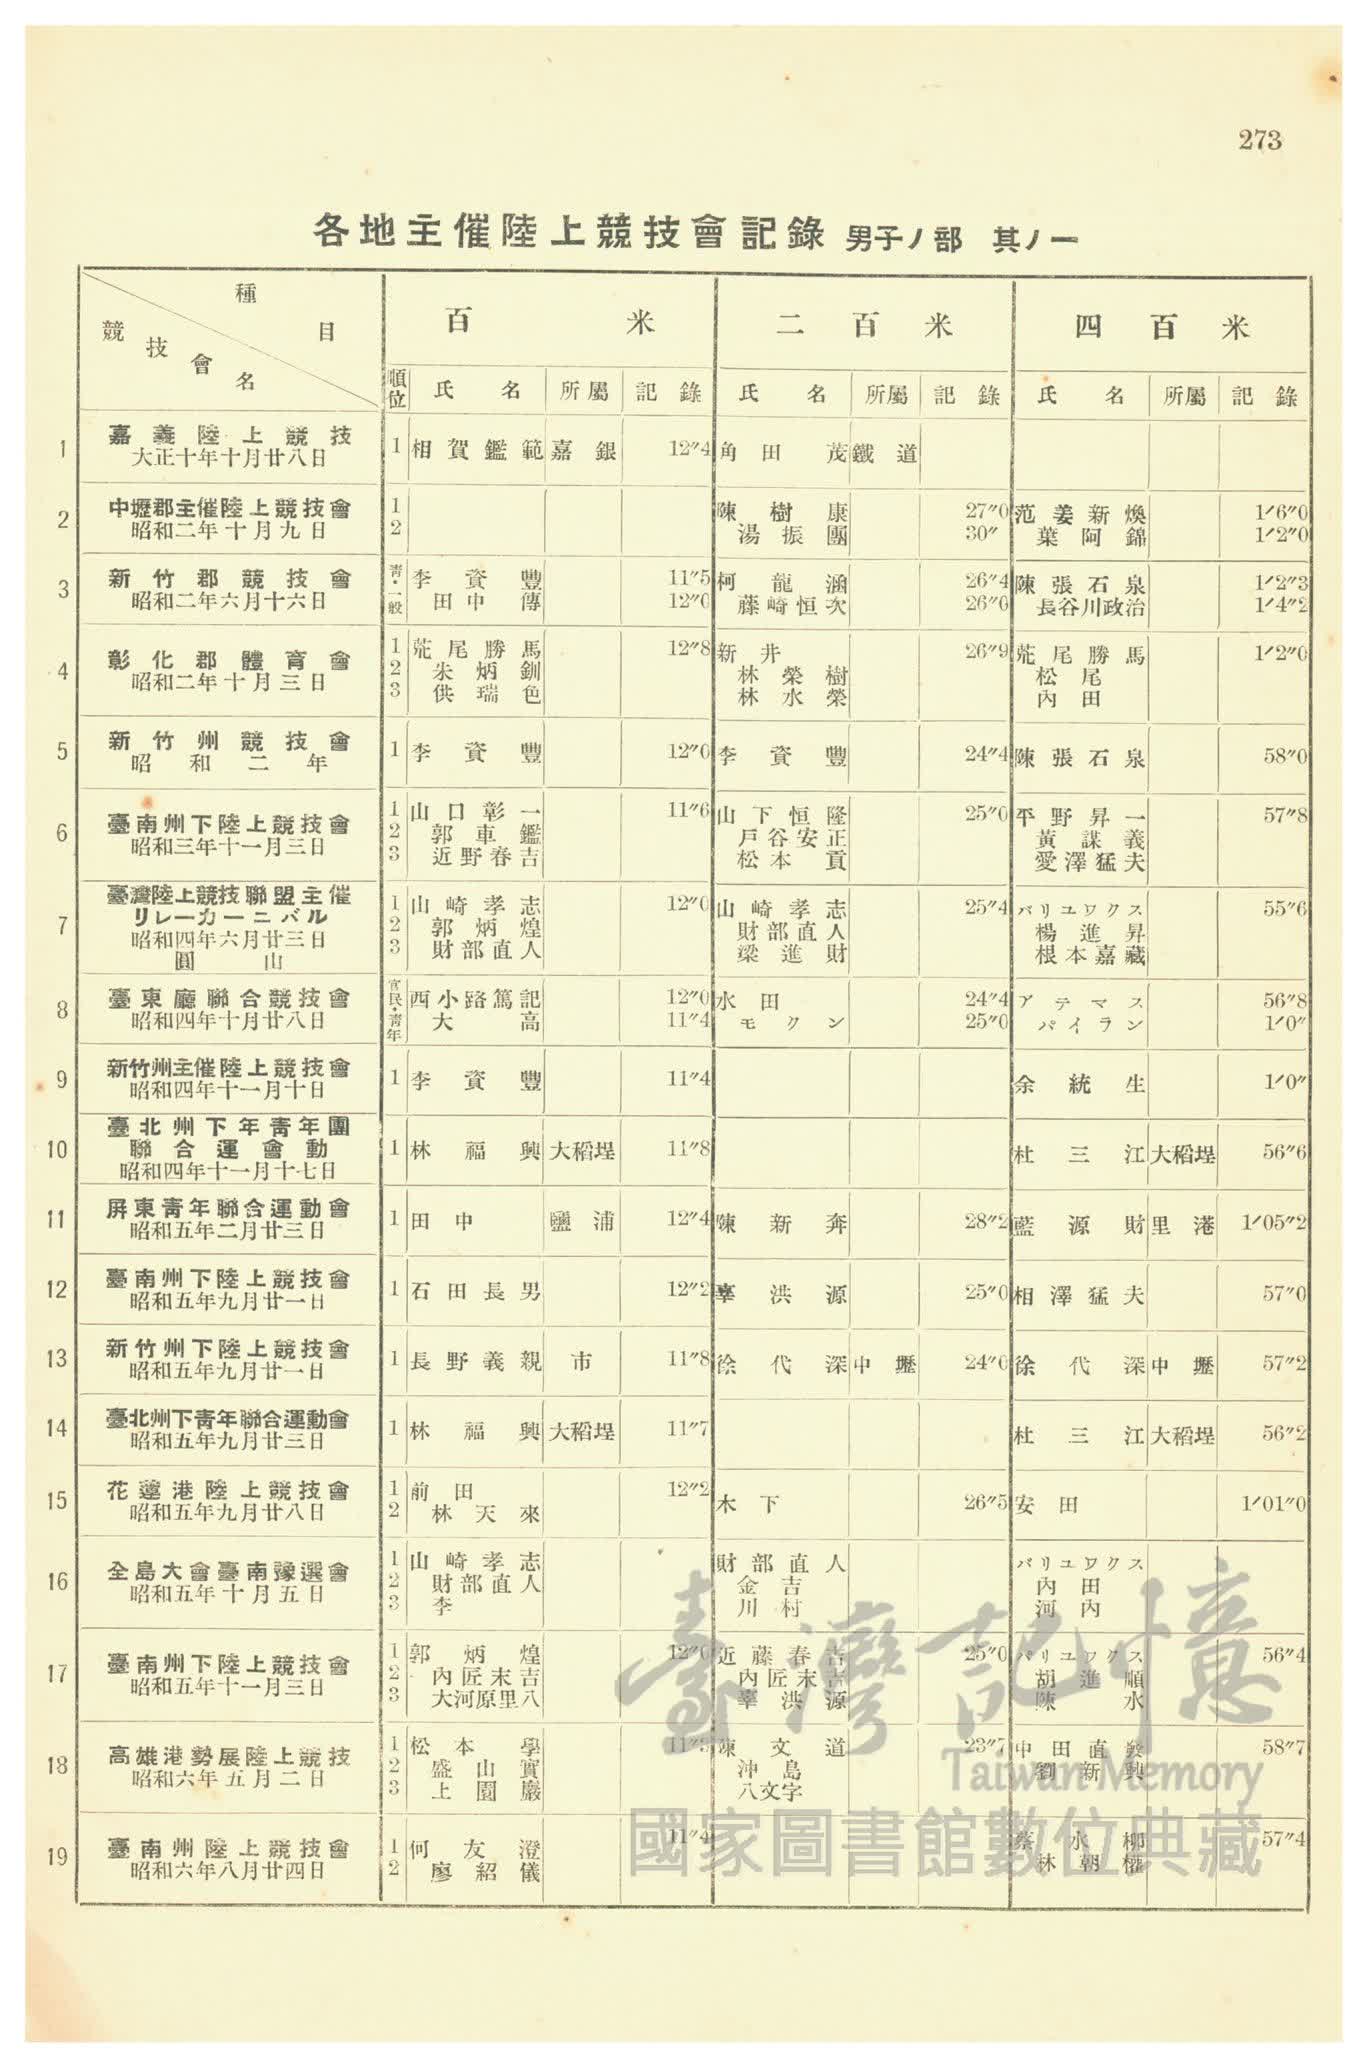 273
各地主催陸上競技會記錄 男子ノ部 其ノ一
種目
競技會名
百米 二百米 四百米
順位 氏名 所屬 記錄 氏名 所屬 記錄 氏名 所屬 記錄
1 嘉義陸上競技 1 相賀鑑範 嘉銀 12″4 角田茂 鐵道
大正十年十月廿八日
2 中壢郡主催陸上競技會 1 陳樹康 27″0 范姜新煥 1′6″0
昭和二年十月九日 2 湯振團 30″ 葉阿錦 1′2″0
3 新竹郡競技會 靑・一般 李資豐 11″5 柯龍涵 26″4 陳張石泉 1′2″3
昭和二年六月十六日 田中傳 12″0 藤崎恒次 26″0 長谷川政治 1′4″2
4 彰化郡體育會 1 荒尾勝馬 12″8 新井 26″9 荒尾勝馬 1′2″0
昭和二年十月三日 2 朱炳釧 林榮樹 松尾
3 供瑞色 林水榮 內田
5 新竹州競技會 1 李資豐 12″0 李資豐 24″4 陳張石泉 58″0
昭和二年
6 臺南州下陸上競技會 1 山口彰一 11″6 山下恒隆 25″0 平野昇一 57″8
昭和三年十一月三日 2 郭車鑑 戶谷安正 黃謀義
3 近野春吉 松本貢 愛澤猛夫
7 臺灣陸上競技聯盟主催 1 山崎孝志 12″0 山崎孝志 25″4 バリユワクス 55″6
リレーカーニバル 2 郭炳煌 財部直人 楊進昇
昭和四年六月廿三日 3 財部直人 梁進財 根本嘉藏
圓山
8 臺東廳聯合競技會 官民・靑年 西小路篤記 12″0 水田 24″4 アテマス 56″8
昭和四年十月廿八日 大高 11″4 モクン 25″0 パイラン 1′0″
9 新竹州主催陸上競技會 1 李資豐 11″4 余統生 1′0″
昭和四年十一月十日
10 臺北州下年靑年團 1 林福興 大稻埕 11″8 杜三江 大稻埕 56″6
聯合運會動
昭和四年十一月十七日
11 屏東靑年聯合運動會 1 田中 鹽浦 12″4 陳新奔 28″2 藍源財 里港 1′05″2
昭和五年二月廿三日
12 臺南州下陸上競技會 1 石田長男 12″2 辜洪源 25″0 相澤猛夫 57″0
昭和五年九月廿一日
13 新竹州下陸上競技會 1 長野義親 市 11″8 徐代深 中壢 24″0 徐代深 中壢 57″2
昭和五年九月廿一日
14 臺北州下靑年聯合運動會 1 林福興 大稻埕 11″7 杜三江 大稻埕 56″2
昭和五年九月廿三日
15 花蓮港陸上競技會 1 前田 12″2 木下 26″5 安田 1′01″0
昭和五年九月廿八日 2 林天來
16 全島大會臺南豫選會 1 山崎孝志 財部直人 バリユワクス
昭和五年十月五日 2 財部直人 金吉 內田
3 李 川村 河內
17 臺南州下陸上競技會 1 郭炳煌 12″0 近藤春吉 25″0 バリユワクス 56″4
昭和五年十一月三日 2 內匠末吉 內匠末吉 胡進順
3 大河原里八 辜洪源 陳水
18 高雄港勢展陸上競技 1 松本學 陳文道 23″7 中田直 58″7
昭和六年五月二日 2 盛山實 沖島 劉新興
3 上園嚴 八文字
19 臺南州陸上競技會 1 何友澄 11″4 蔡水柳 57″4
昭和六年八月廿四日 2 廖紹儀 林朝權
臺灣記憶
Taiwan Memory
國家圖書館數位典藏